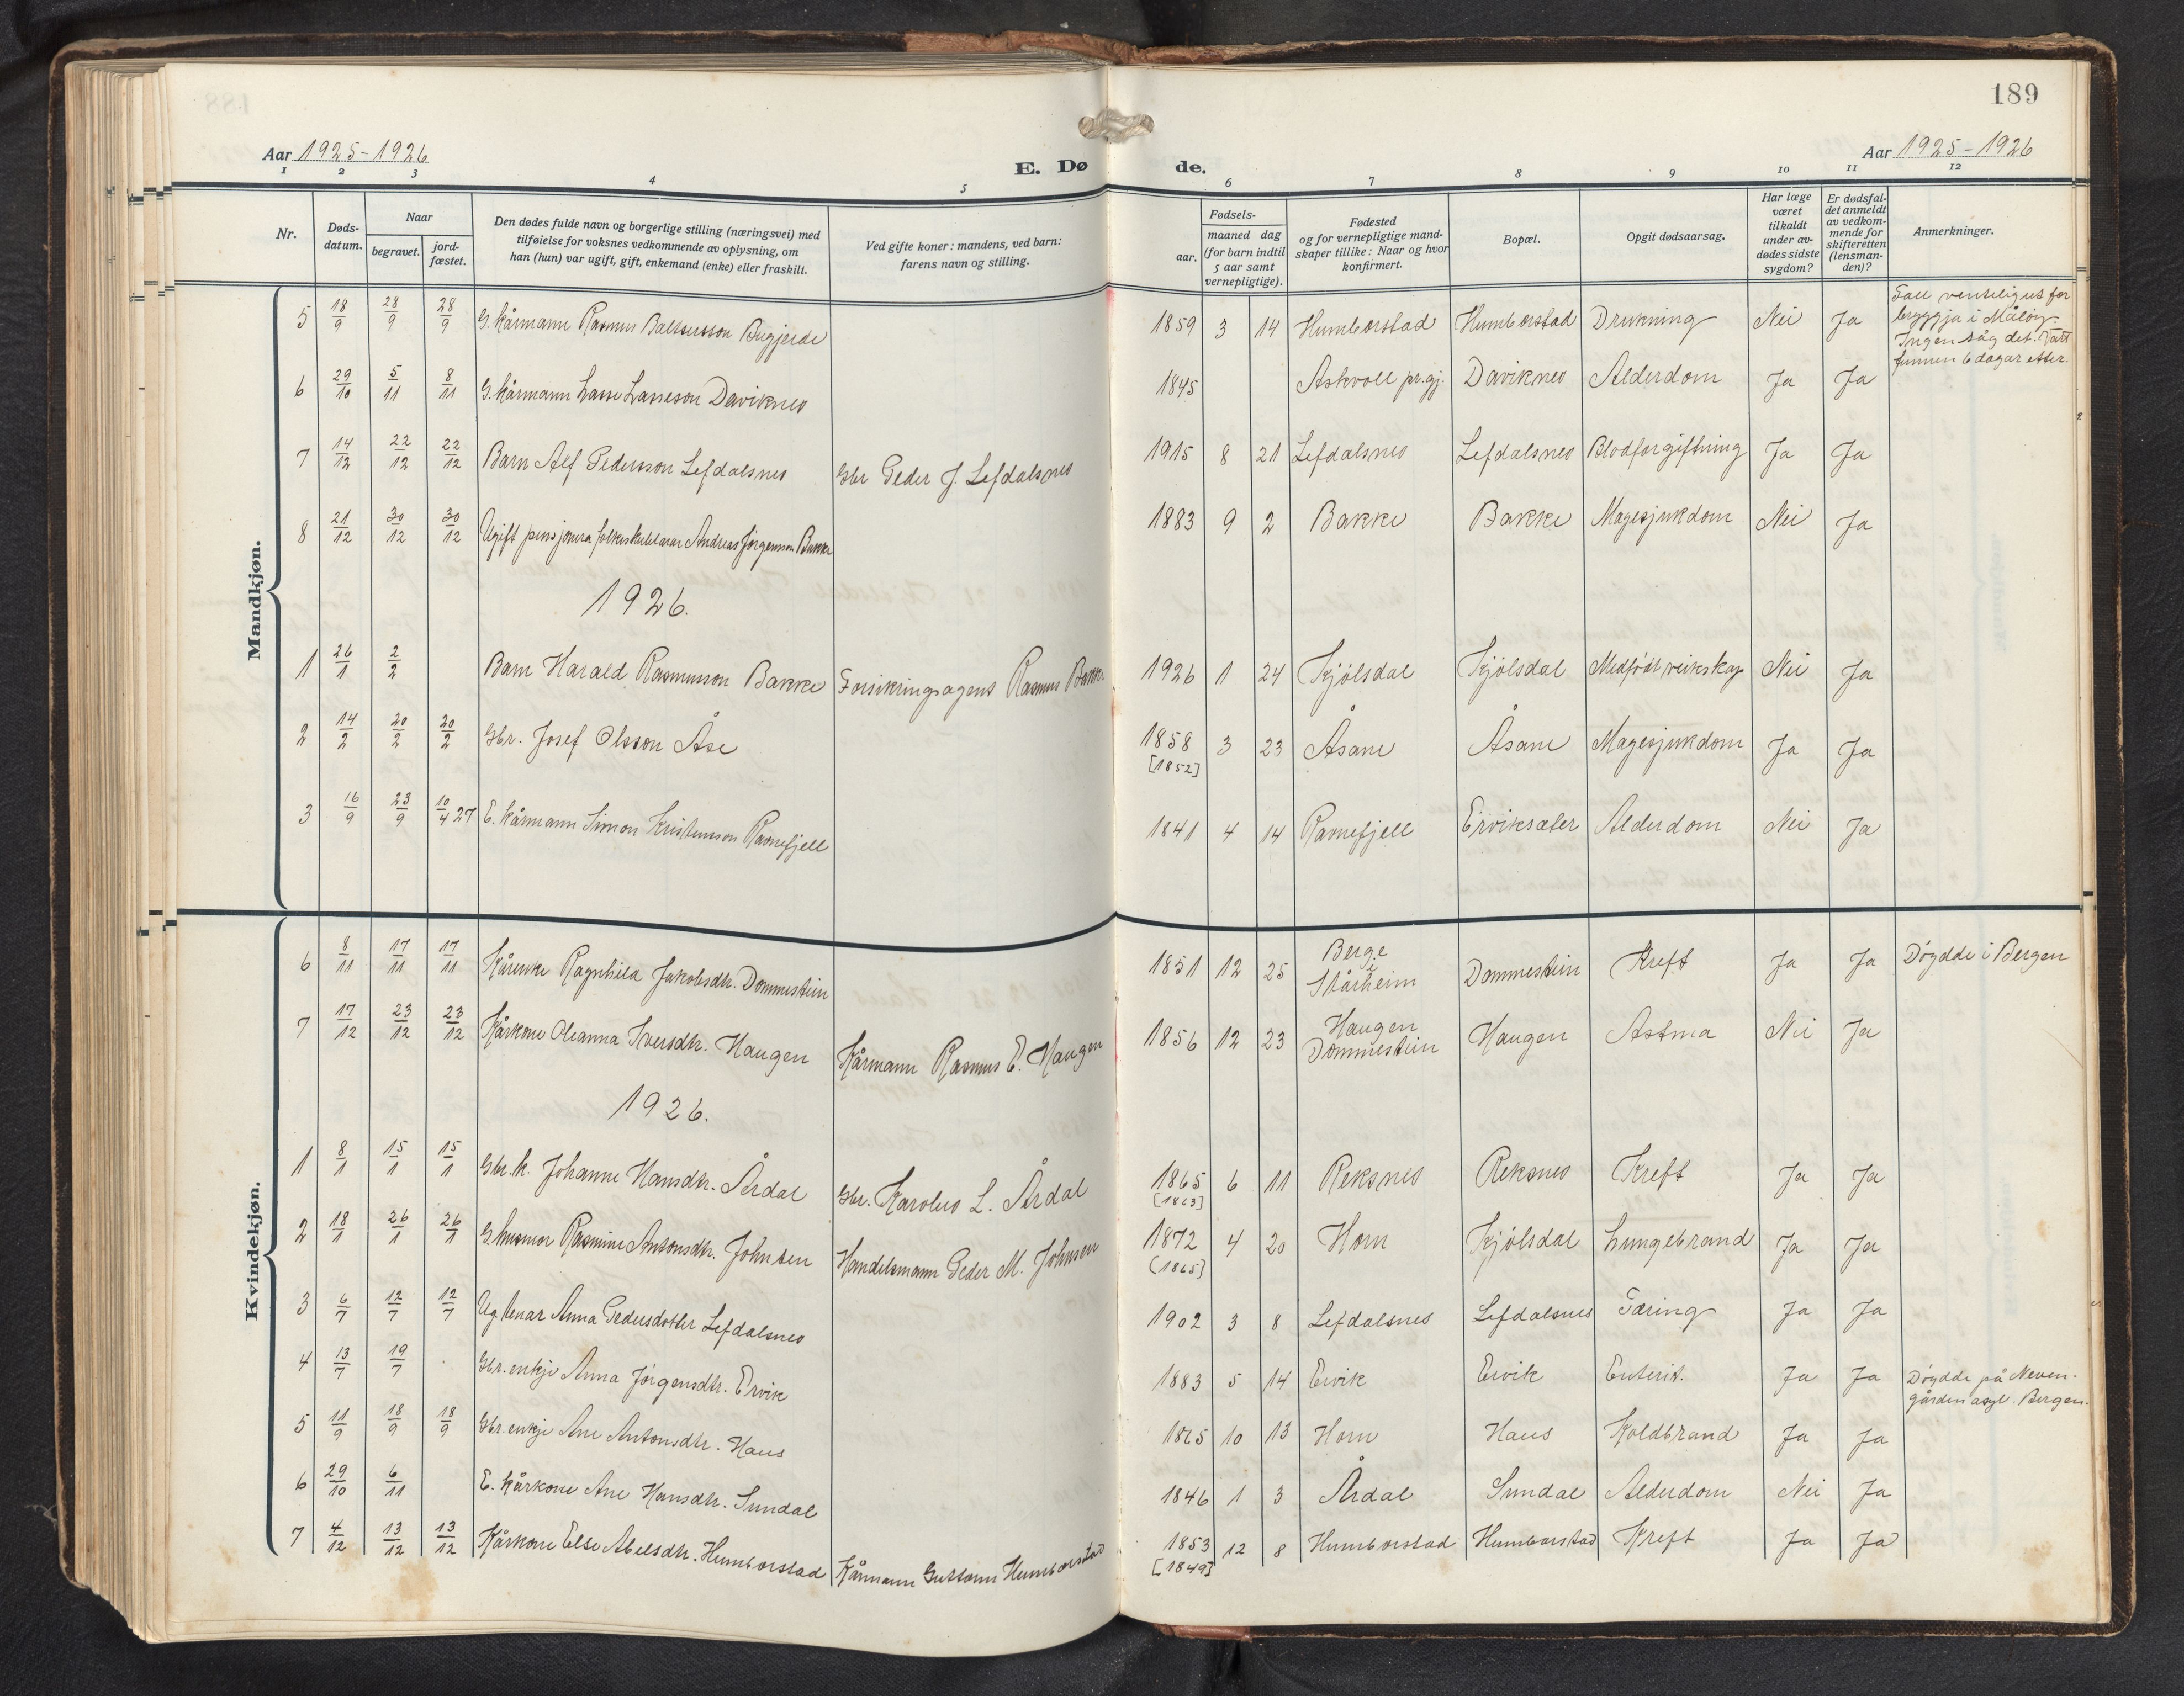 189
Aar 1925-1926
E. Døde.
Aar 1925-1926
1 2 3 4 5 6 7 8 9 10 11 12
Nr.
Døds-
datum.
Naar
begravet.
jord-
fæstet.
Den dødes fulde navn og borgerlige stilling (næringsvei) med
tilføielse for voksnes vedkommende av oplysning, om
han (hun) var ugift, gift, enkemand (enke) eller fraskilt.
Ved gifte koner: mandens, ved barn:
farens navn og stilling.
Fødsels-
aar.
maaned dag
(for barn indtil
5 aar samt
vernepligtige).
Fødested
og for vernepligtige mand-
skaper tillike: Naar og hvor
konfirmert.
Bopæl.
Opgit dødsaarsag.
Har læge
været
tilkaldt
under av-
dødes sidste
sygdom?
Er dødsfal-
det anmeldt
av vedkom-
mende for
skifteretten
(lensman-
den)?
Anmerkninger.
Mandkjøn.
5 18/9 28/9 28/9 G. kårmann Rasmus Baltsersson Bugjerde 1859 3 14 Humborstad Humborstad Drukning Nei Ja Fall venteligut for
bryggja i Måløy.
Ingen såg det. Vart
funnen 6 dagar etter.
6 29/10 5/11 8/11 G. kårmann Lasse Lasseson Daviknes 1845 Askvoll pr.gj. Daviknes Alderdom Ja Ja
7 14/12 22/12 22/12 Barn Alf Pedersson Lefdalsnes Gbr Peder J. Lefdalsnes 1915 8 21 Lefdalsnes Lefdalsnes Blodforgiftning Ja Ja
8 21/12 30/12 30/12 Ugift pensjonera folkeskulelærar Andreas Jørgensson Bakke 1883 9 2 Bakke Bakke Magesjukdom Nei Ja
1926.
1 26/1 2/2 Barn Harald Rasmusson Bakke Forsikringsagent Rasmus Bakke 1926 1 24 Kjølsdal Kjølsdal Medfødt veikskap Nei Ja
2 14/2 20/2 20/2 Gbr. Josef Olsson Åse 1858 3 23 Åsane Åsane Magesjukdom Ja Ja
[1852]
3 16/9 23/9 10/4 27 E. kårmann Simon Kristensson Ravnefjell 1841 4 14 Ravnefjell Erviksæter Alderdom Nei Ja
Kvindekjøn.
6 8/11 17/11 17/11 Kårenke Ragnhild Jakobsdtr. Dommestein 1851 12 25 Berge
i
Stårheim Dommestein Kreft Ja Ja Døydde i Bergen
7 17/12 23/12 23/12 Kårkone Oleanna Iversdtr. Haugen Kårmann Rasmus E. Haugen 1856 12 23 Haugen
Dommestein Haugen Astma Nei Ja
1926.
1 8/1 15/1 15/1 Gbr.k. Johanne Hansdtr. Årdal Gbr. Karolus L. Årdal 1865 6 11 Reksnes Reksnes Kreft Ja Ja
[1863]
2 18/1 26/1 26/1 G. husmor Rasmine Antonsdtr. Johnsen Handelsmann Peder M. Johnsen 1872 4 20 Horn Kjølsdal Lungebrand Ja Ja
[1865]
3 6/7 12/7 12/7 Ug. tenar Anna Pedersdotter Lefdalsnes 1902 3 8 Lefdalsnes Lefdalsnes Tæring Ja Ja
4 13/7 19/7 Gbr. enkje Anna Jørgensdtr. Ervik 1883 5 14 Ervik Ervik Enterit. Ja Ja Døydde på Neven-
gården asyl. Bergen.
5 11/9 18/9 18/9 Gbr. enkje Ane Antonsdtr. Haus 1865 10 13 Horn Haus Koldbrand Ja Ja
6 29/10 6/11 E. kårkone Ane Hansdtr. Sundal 1846 1 3 Årdal Sundal Alderdom Nei Ja
7 4/12 13/12 13/12 Kårkone Else Abelsdtr. Humborstad Kårmann Guttorm Humborstad 1853 12 8 Humborstad Humborstad Kreft Ja Ja
[1849]